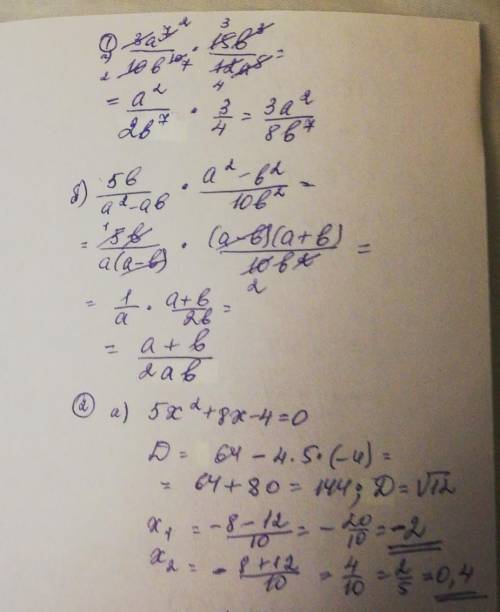 ① а) 3a⁷ ² / 2 10b¹⁰ ⁷ · 3 15b³ / 4 12a⁵ =
= a² / 2b⁷ · 3/4 = 3a² / 8b⁷
б) 5b / a²-ab · a²-b² / 10b² =
= ¹ 5b / a(a-b) · (a-b)(a+b) / 10b² 2 =
= 1/a · a+b / 2b =
= a+b / 2ab
② а) 5x²+8x-4=0
D = 64-4·5·(-4)=
= 64+80=144; D=√12
x₁ = -8-12 / 10 = -20/10 = -2
x₂ = -8+12 / 10 = 4/10 = 2/5 = 0,4